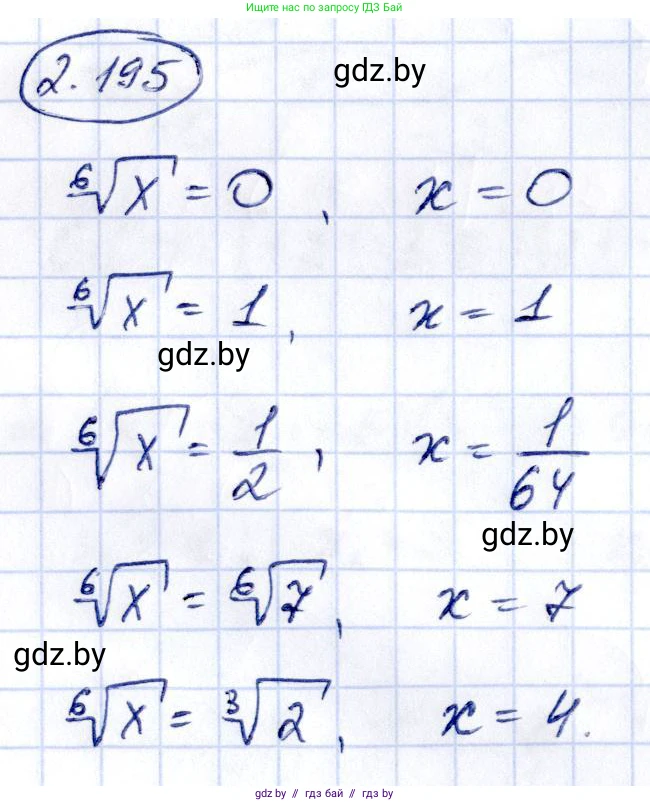 Ищите нас по запросу ГДЗ Бай
2.195
gdz.by
⁶√x = 0, x = 0
⁶√x = 1, x = 1
gdz.by
⁶√x = 1/2, x = 1/64
gdz.by
⁶√x = ⁶√7, x = 7
gdz.by
⁶√x = ³√2, x = 4.
gdz.by // гдз бай // гдз by